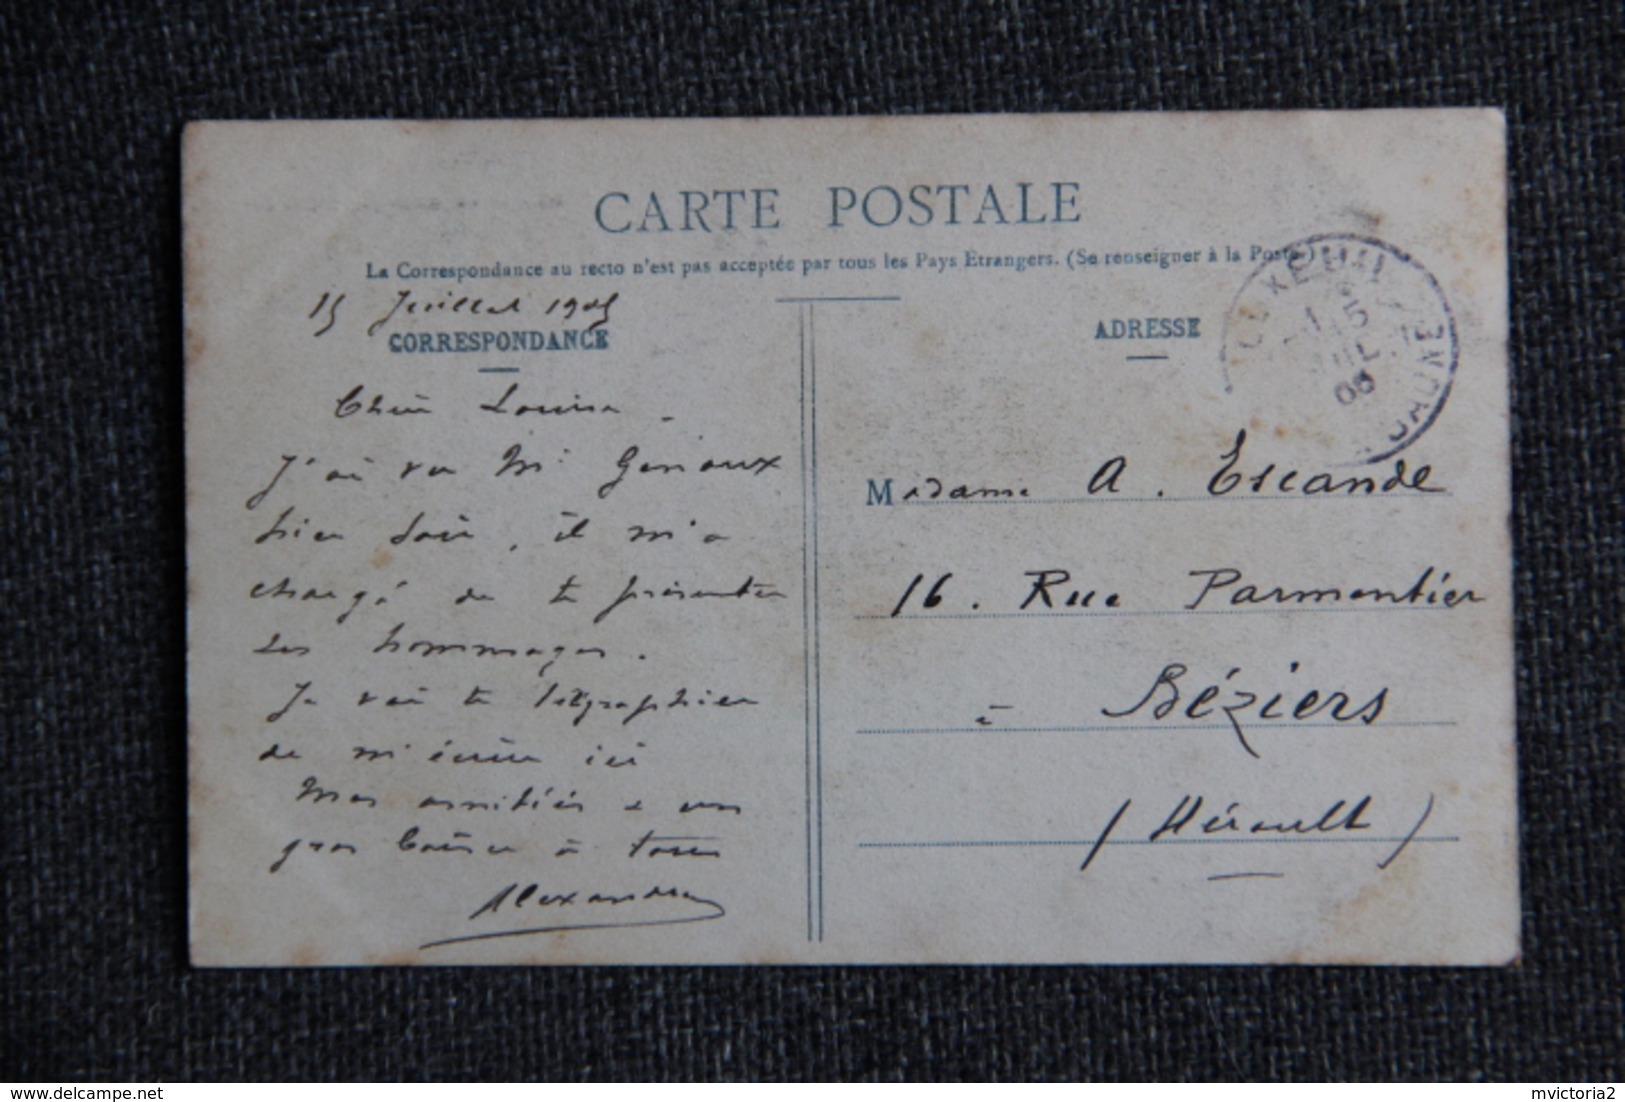 CARTE POSTALE
La Correspondance au recto n'est pas acceptée par tous les Pays Etrangers. (Se renseigner à la Poste.)
15 Juillet 190
CORRESPONDANCE
Chère Louisa
J'ai vu Mr Génioux
hier soir, il m'a
chargé de te présenter
ses hommages.
Je vais te télégraphier
de m'écrire ici
Mes amitiés & un
gros baiser à tous
Alexandre
ADRESSE
LUXEUIL
15
JUIL
06
Madame A. Escande
16. Rue Parmentier
à Béziers
(Hérault)
mvictoria2